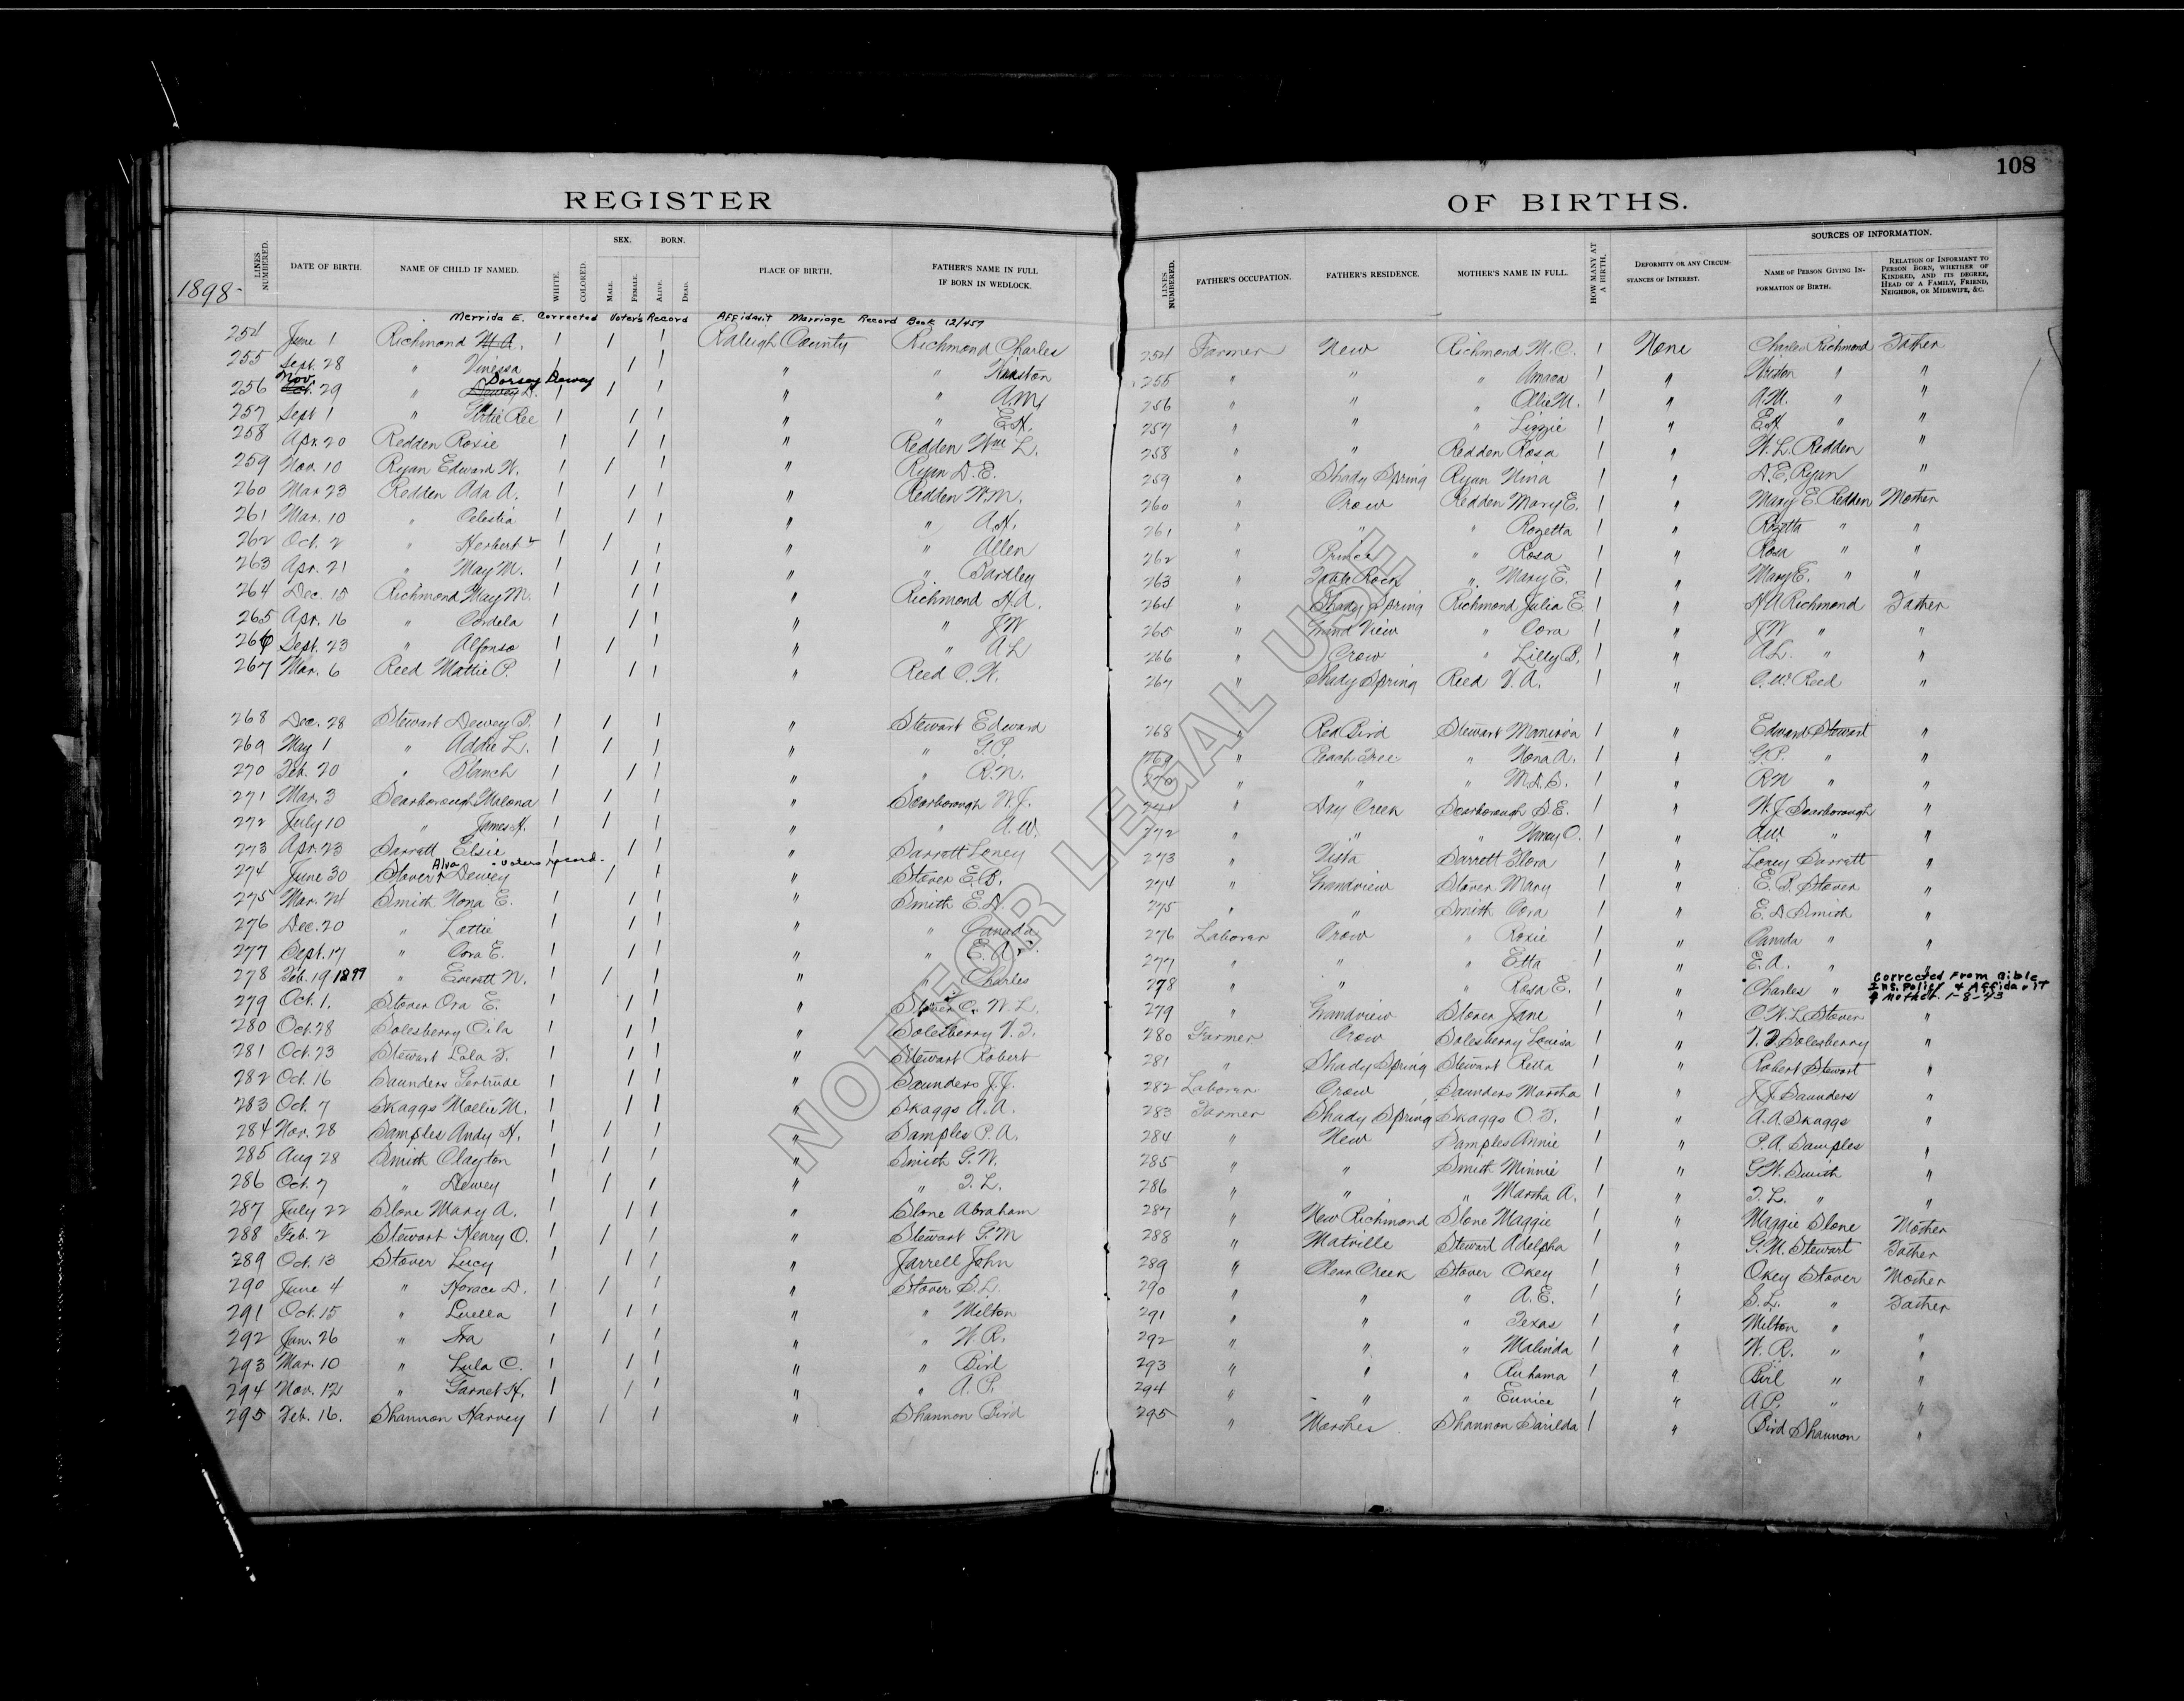 108
REGISTER OF BIRTHS.
SOURCES OF INFORMATION.
LINES NUMBERED. DATE OF BIRTH. NAME OF CHILD IF NAMED. WHITE. COLORED. SEX. MALE. FEMALE. BORN. ALIVE. DEAD. PLACE OF BIRTH. FATHER'S NAME IN FULL IF BORN IN WEDLOCK. LINES NUMBERED. FATHER'S OCCUPATION. FATHER'S RESIDENCE. MOTHER'S NAME IN FULL. HOW MANY AT A BIRTH. DEFORMITY OR ANY CIRCUMSTANCES OF INTEREST. NAME OF PERSON GIVING INFORMATION OF BIRTH. RELATION OF INFORMANT TO PERSON BORN, WHETHER OF KINDRED, AND ITS DEGREE, HEAD OF A FAMILY, FRIEND, NEIGHBOR, OR MIDWIFE, &C.
1898-
Merrida E. Corrected Voter's Record Affidavit Marriage Record Book 12/457
254 June 1 Richmond W.A. 1 1 1 Raleigh County Richmond Charles 254 Farmer New Richmond M.C. 1 None Charles Richmond Father
255 Sept. 28 " Vinessa 1 1 1 " " 255 " " " Amaca 1 " " "
Nov. Dorsey Dewey
256 Oct. 29 " Dewey D. 1 1 1 " " A.M. 256 " " " Ollie M. 1 " A.M. " "
257 Sept 1 " Gertie Ree 1 1 1 " " E.H. 257 " " " Lizzie 1 " E.H. " "
258 Apr. 20 Redden Rosie 1 1 1 " Redden Wm L. 258 " " Redden Rosa 1 " W.L. Redden "
259 Nov. 10 Ryan Edward W. 1 1 1 " Ryan D.E. 259 " Shady Spring Ryan Nina 1 " D.E. Ryan "
260 Mar 23 Redden Ada A. 1 1 1 " Redden W.M. 260 " Crow Redden Mary E. 1 " Mary E. Redden Mother
261 Mar. 10 " Celestia 1 1 1 " " A.H. 261 " " " Rozetta 1 " Rozetta " "
262 Oct. 2 " Herbert 1 1 1 " " Allen 262 " Prince " Rosa 1 " Rosa " "
263 Apr. 21 " May M. 1 1 1 " " Bartley 263 " Table Rock " Mary E. 1 " Mary E. " "
264 Dec. 15 Richmond May M. 1 1 1 " Richmond H.A. 264 " Shady Spring Richmond Julia E 1 " H A Richmond Father
265 Apr. 16 " Cordela 1 1 1 " " J W 265 " Grand View " Cora 1 " J W " "
266 Sept. 23 " Alfonso 1 1 1 " " A L 266 " Crow " Lilly B. 1 " A L. " "
267 Mar. 6 Reed Mattie P. 1 1 1 " Reed C.W. 267 " Shady Spring Reed V.A. 1 " C.W. Reed "
268 Dec. 28 Stewart Dewey P. 1 1 1 " Stewart Edward 268 " Red Bird Stewart Manirva 1 " Edward Stewart "
269 May 1 " Addie L. 1 1 1 " " G.P. 269 " Peach Tree " Nona A. 1 " G.P. " "
270 Feb. 20 " Blanch 1 1 1 " " R.N. 270 " " " 1 " R N " "
271 Mar. 3 Scarborough Malona 1 1 1 " Scarborough W.J. 271 " Dry Creek Scarborough S.E. 1 " W.J. Scarborough "
272 July 10 " James H. 1 1 1 " " A.W. 272 " " " Nancy C. 1 " A.W. " "
273 Apr. 23 Sarrett Elsie 1 1 1 " Sarratt Loney 273 " Vista Sarrett Flora 1 " Loney Sarratt "
Alva - voters record.
274 June 30 Stover Dewey 1 1 " Stover E.B. 274 " Grandview Stover Mary 1 " E.B. Stover "
275 Mar. 24 Smith Nona E. 1 1 1 " Smith E.D. 275 " " Smith Cora 1 " E. D. Smith "
276 Dec. 20 " Lattie 1 1 1 " " Canada 276 Laborar Crow " Roxie 1 " Canada " "
277 Sept. 17 " Cora E. 1 1 1 " " E.A. 277 " " " Etta 1 " E.A. " "
Corrected From Bible Ins. Policy & Affidavit of Mother. 1-8-43
278 Feb. 19 1899 " Everett N. 1 1 1 " " Charles 278 " " " Rosa E. 1 " Charles "
279 Oct. 1. Stover Ora E. 1 1 1 " Stover C. W. L. 279 " Grandview Stover Jane 1 " C.W.L. Stover "
280 Oct. 28 Solesberry Oila 1 1 1 " Solesberry V.T. 280 Farmer Crow Solesberry Louisa 1 " V.T. Solesberry "
281 Oct. 23 Stewart Lola F. 1 1 1 " Stewart Robert 281 " Shady Spring Stewart Retta 1 " Robert Stewart "
282 Oct. 16 Saunders Gertrude 1 1 1 " Saunders J.J. 282 Laborar Crow Saunders Marsha 1 " J.J. Saunders "
283 Oct. 7 Skaggs Mollie M. 1 1 1 " Skaggs A.A. 283 Farmer Shady Spring Skaggs O.F. 1 " A.A. Skaggs "
284 Nov. 28 Samples Andy H. 1 1 1 " Samples P.A. 284 " New Samples Annie 1 " P.A. Samples "
285 Aug 28 Smith Clayton 1 1 1 " Smith G.W. 285 " " Smith Minnie 1 " G.W. Smith "
286 Oct. 7 " Dewey 1 1 1 " " T.L. 286 " " " Martha A. 1 " T.L. " "
287 July 22 Slone Mary A. 1 1 1 " Slone Abraham 287 " New Richmond Slone Maggie 1 " Maggie Slone Mother
288 Feb. 2 Stewart Henry O. 1 1 1 " Stewart G.M 288 " Matville Stewart Adelpha 1 " G.M. Stewart Father
289 Oct. 13 Stover Lucy 1 1 1 " Jarrell John 289 " Clear Creek Stover Okey 1 " Okey Stover Mother
290 June 4 " Horace D. 1 1 1 " Stover S.L. 290 " " " A.E. 1 " S.L. " Father
291 Oct. 15 " Luella 1 1 1 " " Milton 291 " " " Texas 1 " Milton " "
292 Jan. 26 " Ira 1 1 1 " " W.R. 292 " " " Malinda 1 " W.R. " "
293 Mar. 10 " Lula C. 1 1 1 " " Birl 293 " " " Ruhama 1 " Birl " "
294 Nov. 12 " Garnet H. 1 1 1 " " A.P. 294 " " " Eunice 1 " A.P. " "
295 Feb. 16. Shannon Harvey 1 1 1 " Shannon Bird 295 " Marshes Shannon Sarilda 1 " Bird Shannon "
NOT FOR LEGAL USE